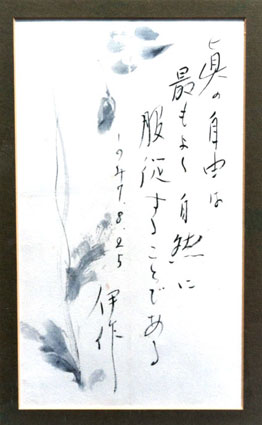 眞の自由は
最もよく自然に
服従することである
1947.8.25
伊作